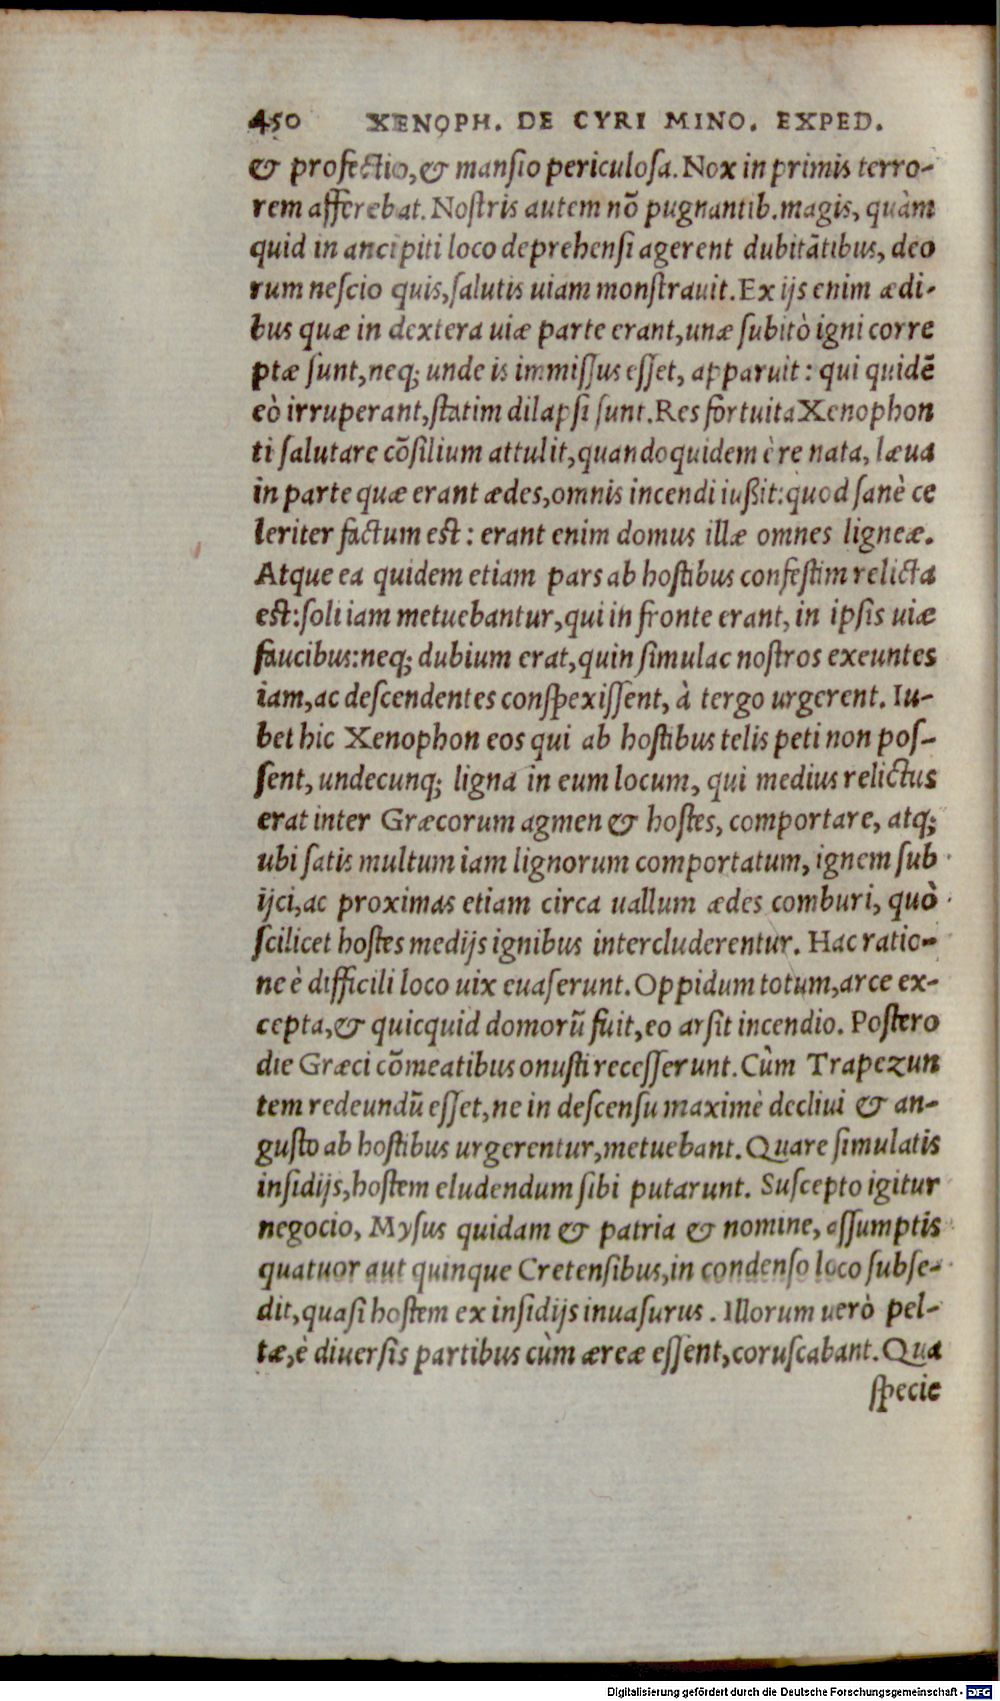 450 XENOPH. DE CYRI MINO. EXPED.
& profectio, & mansio periculosa. Nox in primis terro-
rem afferebat. Nostris autem nõ pugnantib. magis, quàm
quid in ancipiti loco deprehensi agerent dubitãtibus, deo
rum nescio quis, salutis uiam monstrauit. Ex ijs enim ædi-
bus quæ in dextera uiæ parte erant, unæ subitò igni corre
ptæ sunt, neq; unde is immissus esset, apparuit: qui quidẽ
eò irruperant, statim dilapsi sunt. Res fortuita Xenophon
ti salutare cõsilium attulit, quandoquidem è re nata, læua
in parte quæ erant ædes, omnis incendi iußit: quod sanè ce
leriter factum est: erant enim domus illæ omnes ligneæ.
Atque ea quidem etiam pars ab hostibus confestim relicta
est: soli iam metuebantur, qui in fronte erant, in ipsis uiæ
faucibus: neq; dubium erat, quin simulac nostros exeuntes
iam, ac descendentes conspexissent, à tergo urgerent. Iu-
bet hic Xenophon eos qui ab hostibus telis peti non pos-
sent, undecunq; ligna in eum locum, qui medius relictus
erat inter Græcorum agmen & hostes, comportare, atq;
ubi satis multum iam lignorum comportatum, ignem sub
ijci, ac proximas etiam circa uallum ædes comburi, quò
scilicet hostes medijs ignibus intercluderentur. Hac ratio-
ne è difficili loco uix euaserunt. Oppidum totum, arce ex-
cepta, & quicquid domorũ fuit, eo arsit incendio. Postero
die Græci cõmeatibus onusti recesserunt. Cùm Trapezun
tem redeundũ esset, ne in descensu maximè decliui & an-
gusto ab hostibus urgerentur, metuebant. Quare simulatis
insidijs, hostem eludendum sibi putarunt. Suscepto igitur
negocio, Mysus quidam & patria & nomine, assumptis
quatuor aut quinque Cretensibus, in condenso loco subse-
dit, quasi hostem ex insidijs inuasurus. Illorum uerò pel-
tæ, è diuersis partibus cùm æreæ essent, coruscabant. Qua
specie
Digitalisierung gefördert durch die Deutsche Forschungsgemeinschaft - DFG